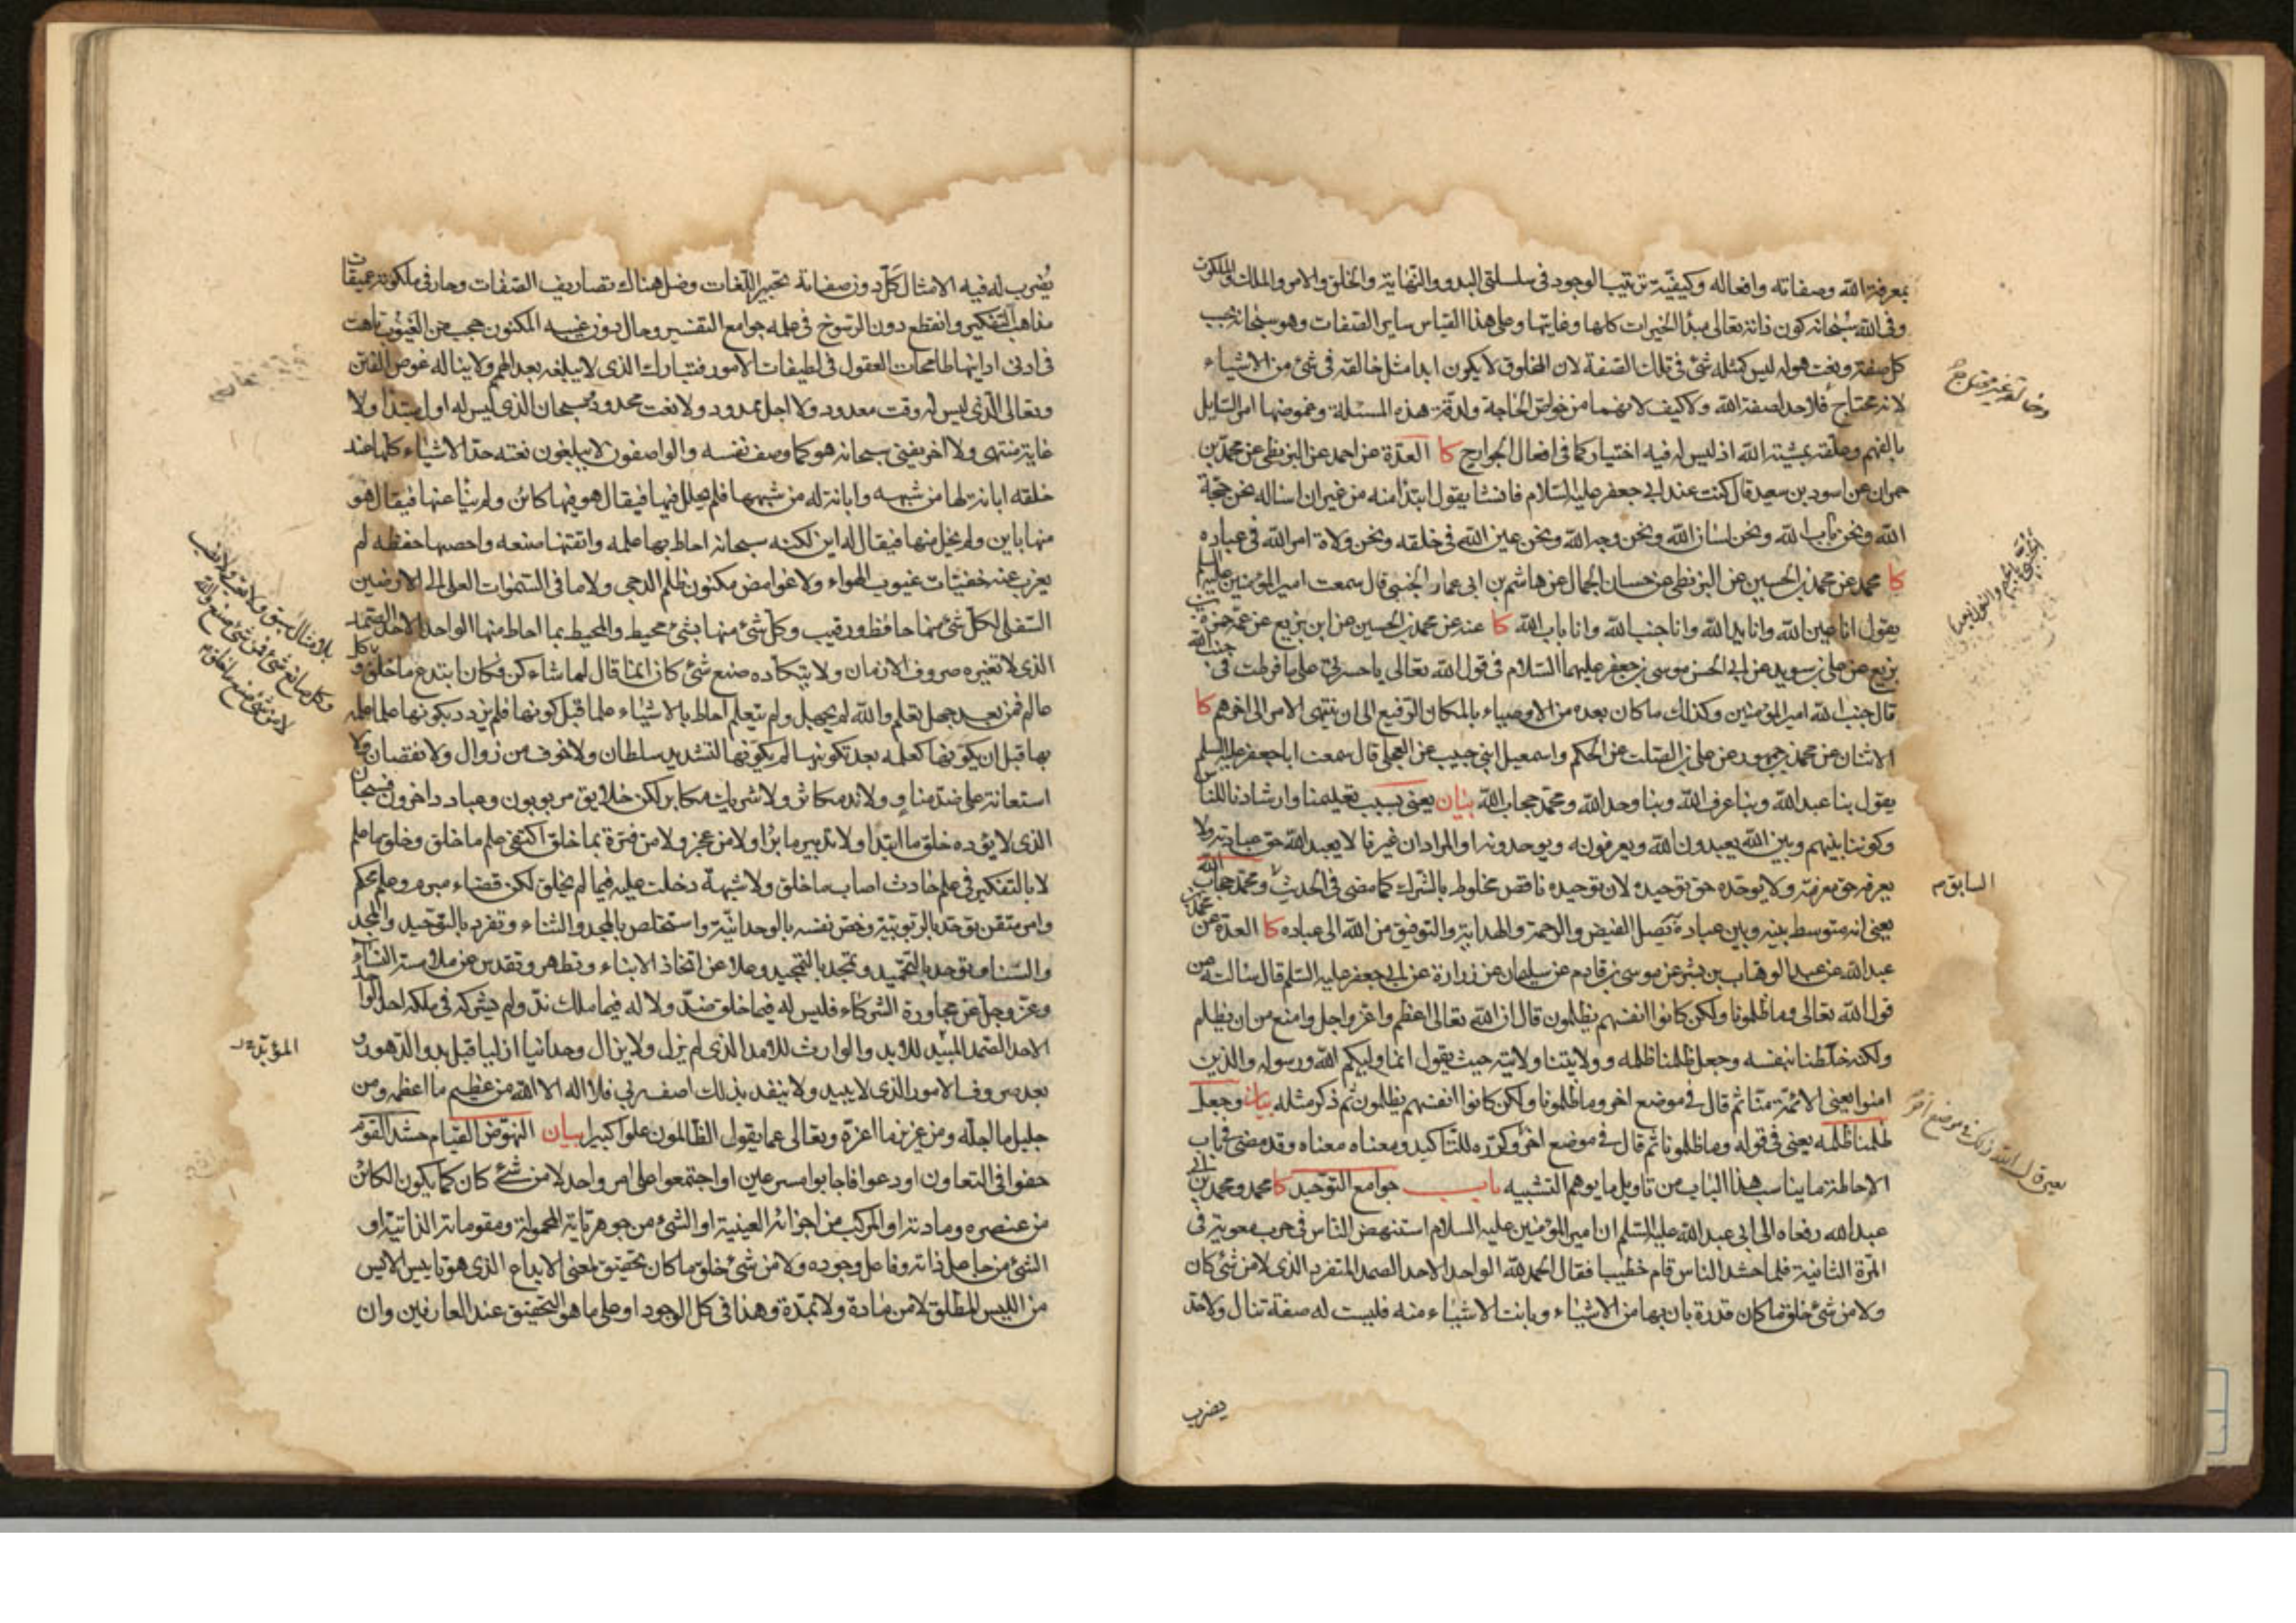 بمعرفة الله وصفاته وافعاله وكيفية ترتيب الوجود فى سلسلتى البدو والنهاية والخلق والامر والملك والملكوت
وفى الله سبحانه كون ذاته تعالى مبدأ الخيرات كلها وغايتها وعلى هذا القياس ساير الصفات وهو سبحانه بحسب
كل صفة ونعت هو له ليس كمثله شئ فى تلك الصفة لان المخلوق لا يكون ابدا مثل خالقه فى شئ من الاشياء
لانه محتاج فلا حد لصفة الله ولا كيف لانهما من خواص الحاجة ولدقة هذه المسئلة وغموضها امر السايل
بالفهم وعلقه بمشية الله اذ ليس له فيه اختيار كما فى افعال الجوارح كا العدة عن احمد عن البزنطى عن محمد بن
حمران عن اسود بن سعيد قال كنت عند ابى جعفر عليه السلام فانشا يقول ابتدا منه من غير ان اساله نحن حجة
الله ونحن باب الله ونحن لسان الله ونحن وجه الله ونحن عين الله فى خلقه ونحن ولاة امر الله فى عباده
كا محمد عن محمد بن الحسين عن البزنطى عن حسان الجمال عن هاشم بن ابى عمار الجنبى قال سمعت امير المؤمنين عليه السلم
يقول انا عين الله وانا يد الله وانا جنب الله وانا باب الله كا عنه عن محمد بن الحسين عن ابن بزيع عن عمه حمزة بن
بزيع عن على بن سويد عن ابى الحسن موسى بن جعفر عليهما السلام فى قول الله تعالى يا حسرتى على ما فرطت فى جنب الله
قال جنب الله امير المؤمنين وكذلك ما كان بعده من الاوصياء بالمكان الرفيع الى ان ينتهى الامر الى اخرهم كا
الاثنان عن محمد بن جمهور عن على بن الصلت عن الحكم واسمعيل ابنى حبيب عن العجلى قال سمعت ابا جعفر عليه السلم
يقول بنا عبد الله وبنا عرف الله وبنا وحد الله ومحمد حجاب الله بيان يعنى بسبب تعليمنا وارشادنا للناس
وكوننا بينهم وبين الله يعبدون الله ويعرفونه ويوحدونه او المراد ان غيرنا لا يعبد الله حق عبادته ولا
يعرفه حق معرفته ولا يوحده حق توحيده لان توحيده ناقص مخلوط بالشرك كما مضى فى الحديث ومحمد حجاب الله
يعنى انه متوسط بينه وبين عباده به يصل الفيض والرحمة والهداية والتوفيق من الله الى عباده كا العدة عن محمد بن
عبد الله عن عبد الوهاب بن بشر عن موسى بن قادم عن سليمان عن زرارة عن ابى جعفر عليه السلم قال سالته عن
قول الله تعالى وما ظلمونا ولكن كانوا انفسهم يظلمون قال ان الله تعالى اعظم واعز واجل وامنع من ان يظلم
ولكنه خلطنا بنفسه وجعل ظلمنا ظلمه وولايتنا ولايته حيث يقول انما وليكم الله ورسوله والذين
امنوا يعنى الائمة منا ثم قال فى موضع اخر وما ظلمونا ولكن كانوا انفسهم يظلمون ثم ذكر مثله بيان وجعل
ظلمنا ظلمه يعنى فى قوله وما ظلمونا ثم قال فى موضع اخر وكرره للتاكيد ومعناه معناه وقد مضى فى باب
الاحاطة ما يناسب هذا الباب من تاويل ما يوهم التشبيه باب جوامع التوحيد كا محمد ومحمد بن ابى
عبد الله رفعاه الى ابى عبد الله عليه السلم ان امير المؤمنين عليه السلام استنهض الناس فى حرب معوية فى
المرة الثانية فلما حشد الناس قام خطيبا فقال الحمد لله الواحد الاحد الصمد المتفرد الذى لا من شئ كان
ولا من شئ خلق ما كان قدرة بان بها من الاشياء وبانت الاشياء منه فليست له صفة تنال ولا حد
يضرب
وخالقه غير محتاج
السابق م
يضرب له فيه الامثال كل دون صفاته تحبير اللغات وضل هناك تصاريف الصفات وحار فى ملكوته عميقات
مذاهب التفكير وانقطع دون الرسوخ فى علمه جوامع التفسير وحال دون غيبه المكنون حجب من الغيوب تاهت
فى ادنى ادانيها طامحات العقول فى لطيفات الامور فتبارك الذى لا يبلغه بعد الهمم ولا يناله غوص الفتن
وتعالى الذى ليس له وقت معدود ولا اجل ممدود ولا نعت محدود سبحان الذى ليس له اول مبتدأ ولا
غاية منتهى ولا اخر يفنى سبحانه هو كما وصف نفسه والواصفون لا يبلغون نعته حد الاشياء كلها عند
خلقه ابانة لها من شبهه وابانة له من شبهها فلم يحلل فيها فيقال هو فيها كائن ولم ينأ عنها فيقال هو
منها باين ولم يخل منها فيقال له اين لكنه سبحانه احاط بها علمه واتقنها صنعه واحصها حفظه لم
يعزب عنه خفيات غيوب الهواء ولا غوامض مكنون ظلم الدجى ولا ما فى السموات العلى الى الارضين
السفلى لكل شئ منها حافظ ورقيب وكل شئ منها بشئ محيط والمحيط بما احاط منها الواحد الاحد الصمد
الذى لا تغيره صروف الازمان ولا يتكأده صنع شئ كان انما قال لما شاء كن فكان ابتدع ما خلق و
عالم فمن بعد جهل تعلم والله لم يجهل ولم يتعلم احاط بالاشياء علما قبل كونها فلم يزدد بكونها علما علمه
بها قبل ان يكونها كعلمه بعد تكوينها لم يكونها لتشديد سلطان ولا خوف من زوال ولا نقصان ولا
استعانة على ضد مناو ولا ند مكاثر ولا شريك مكابر لكن خلايق مربوبون وعباد داخرون فسبحان
الذى لا يؤده خلق ما ابتدا ولا تدبير ما برأ ولا من عجز ولا من فترة بما خلق اكتفى علم ما خلق وخلق ما علم
لا بالتفكير فى علم حادث اصاب ما خلق ولا شبهة دخلت عليه فيما لم يخلق لكن قضاء مبرم وعلم محكم
وامر متقن توحد بالربوبية وخص نفسه بالوحدانية واستخلص بالمجد والثناء وتفرد بالتوحيد والمجد
والسنا وتوحد بالتحميد وتمجد بالتمجيد وعلا عن اتخاذ الابناء وتطهر وتقدس عن ملامسة النساء
وعز وجل عن مجاورة الشركاء فليس له فيما خلق ضد ولا له فيما ملك ند ولم يشركه فى ملكه احد الواحد
الاحد الصمد المبيد للابد والوارث للامد الذى لم يزل ولا يزال وحدانيا ازليا قبل بدو الدهور
بعد صروف الامور الذى لا يبيد ولا ينفد بذلك اصف ربى فلا اله الا الله من عظيم ما اعظمه ومن
جليل ما اجله ومن عزيز ما اعزه وتعالى عما يقول الظالمون علوا كبيرا بيان النهوض القيام حشد القوم
حفوا فى التعاون او دعوا فاجابوا مسرعين او اجتمعوا على امر واحد لا من شئ كان كما يكون الكائن
من عنصره ومادته او المركب من اجزائه العينية او الشئ من جوهرياته المحمولة ومقوماته الذاتية او
الشئ من جاعل ذاته وفاعل وجوده ولا من شئ خلق ما كان تحقيق لمعنى الابداع الذى هو تاييس الايس
من الليس المطلق لا من مادة ولا بمدة وهذا فى كل الوجود او على ما هو التحقيق عند العارفين وان
بلا مثال سبق ولا تعب ولا نصب
وكل صانع شئ فمن شئ صنع والله
لا من شئ صنع ما خلق م